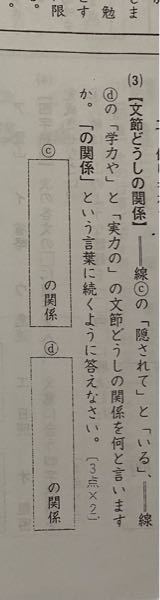 (3)【文節どうしの関係】――線ⓒの「隠されて」と「いる」、――線
ⓓの「学力や」と「実力の」の文節どうしの関係を何と言います
か。「の関係」という言葉に続くように答えなさい。〔3点×2〕
ⓒ の関係
ⓓ の関係